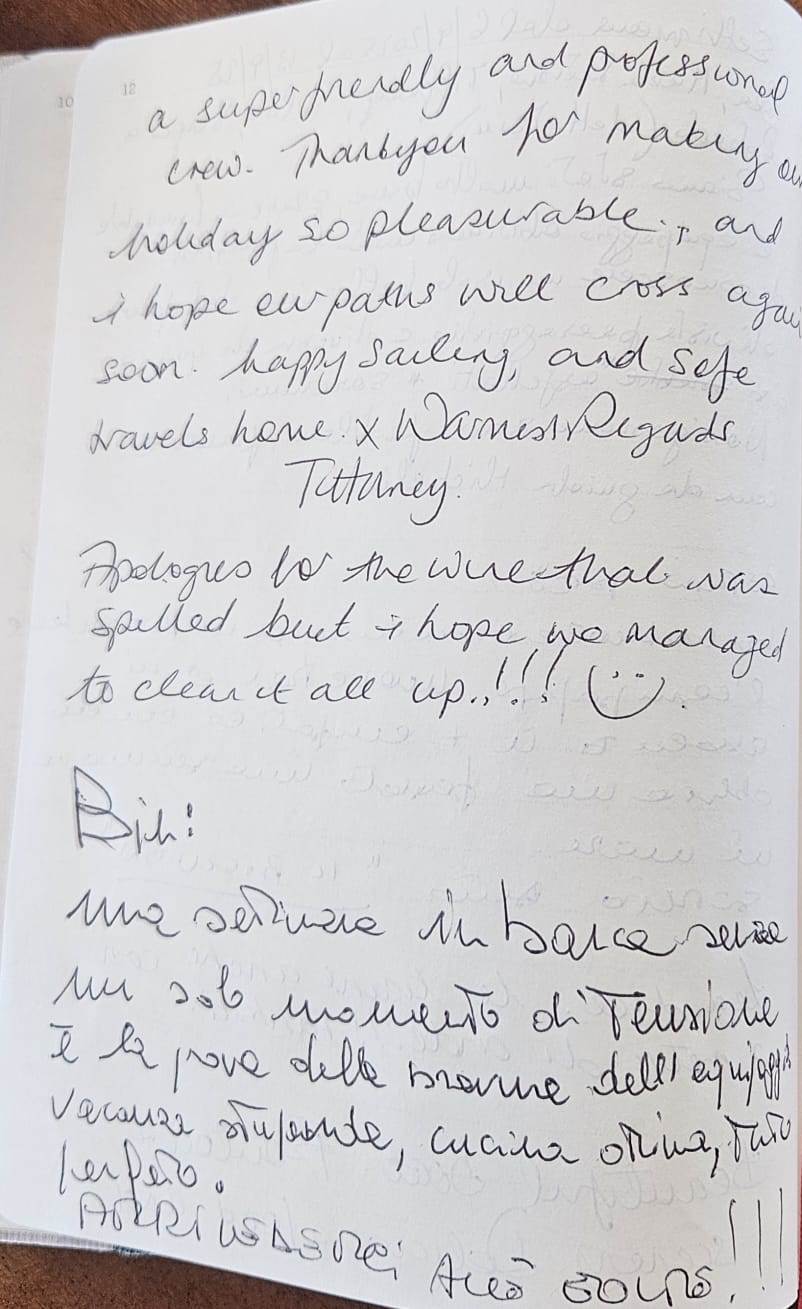 10
12
a superfriendly and professional
crew. Thankyou for making ou
holiday so pleasurable., and
i hope our paths will cross agai
soon. happy sailing, and safe
travels home. x Warmest Regards
Apologies for the wine that was
spilled but i hope we managed
to clean it all up..!!!
una settimana in barca senza
un solo momento di tensione
è la prova della bravura dell'equipaggio
vacanza stupenda, cucina ottima, tutto
perfetto.
!!!